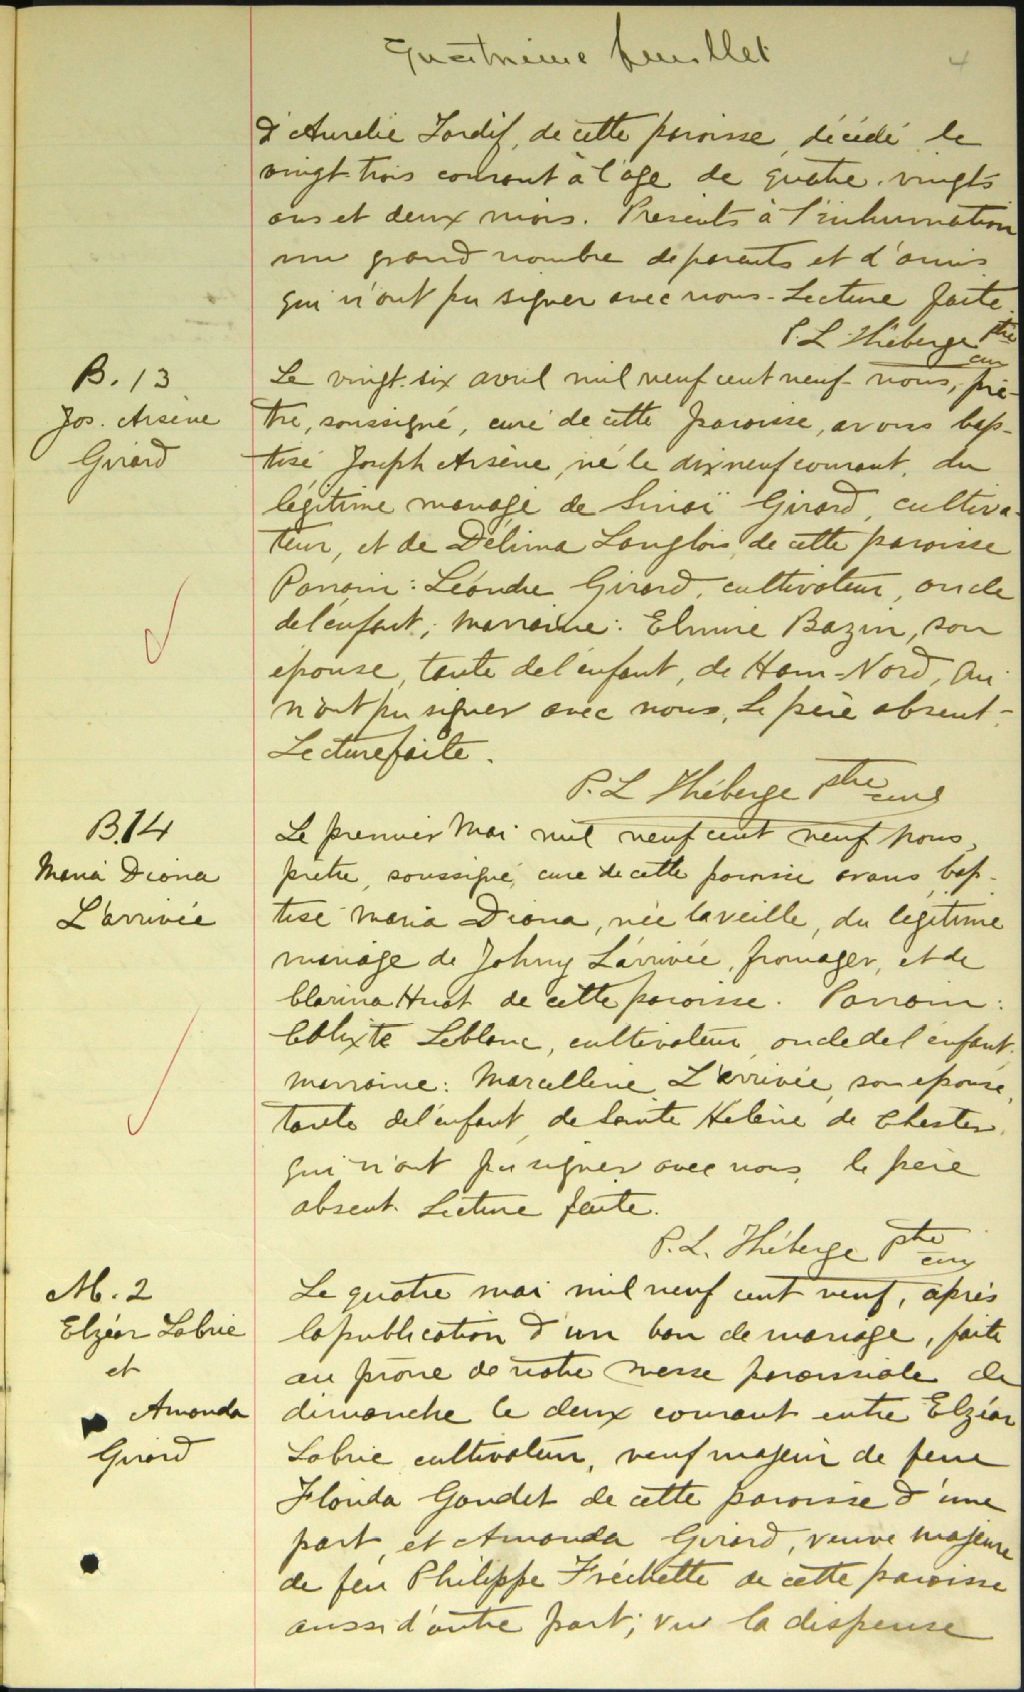 Quatrième feuillet
4
d'Aurelie Tardif, de cette paroisse, décédé le
vingt-trois courant à l'âge de quatre-vingts
ans et deux mois. Presents à l'inhumation
un grand nombre de parents et d'amis
qui n'ont pu signer avec nous. Lecture faite.
P. L. Théberge ptre
cur
B. 13
Jos. Arsène
Girard
Le vingt-six avril mil neuf cent neuf nous, prê-
tre, soussigné, curé de cette paroisse, avons bap-
tisé Joseph Arsène, né le dix neuf courant, du
légitime mariage de Sinaï Girard, cultiva-
teur, et de Délima Langlois de cette paroisse
Parrain: Léandre Girard, cultivateur, oncle
de l'enfant; marraine: Elmire Bazin, son
épouse, tante de l'enfant, de Ham-Nord, qui
n'ont pu signer avec nous, le père absent-
Lecture faite.
P. L Théberge ptre
curé
B. 14
Maria Diana
L'arrivée
Le premier Mai mil neuf cent neuf nous,
prêtre, soussigné, curé de cette paroisse avons bap-
tisé Maria Diana, née la veille, du légitime
mariage de Johny L'arrivée, fromager, et de
Clarina Huot de cette paroisse. Parrain:
Calixte Leblanc, cultivateur, oncle de l'enfant;
marraine: Marcelline L'arrivée, son épouse,
tante de l'enfant, de Sainte Hélène de Chester,
qui n'ont pu signer avec nous, le père
absent. Lecture faite.
P. L. Théberge ptre
cur
M. 2
Elzéar Labrie
et
Amanda
Girard
Le quatre mai mil neuf cent neuf, après
la publication d'un ban de mariage, faite
au prône de notre messe paroissiale de
dimanche le deux courant entre Elzéar
Labrie cultivateur, veuf majeur de feue
Florida Gaudet de cette paroisse d'une
part, et Amanda Girard, veuve majeure
de feu Philippe Fréchette de cette paroisse
aussi d'autre part; vu la dispense